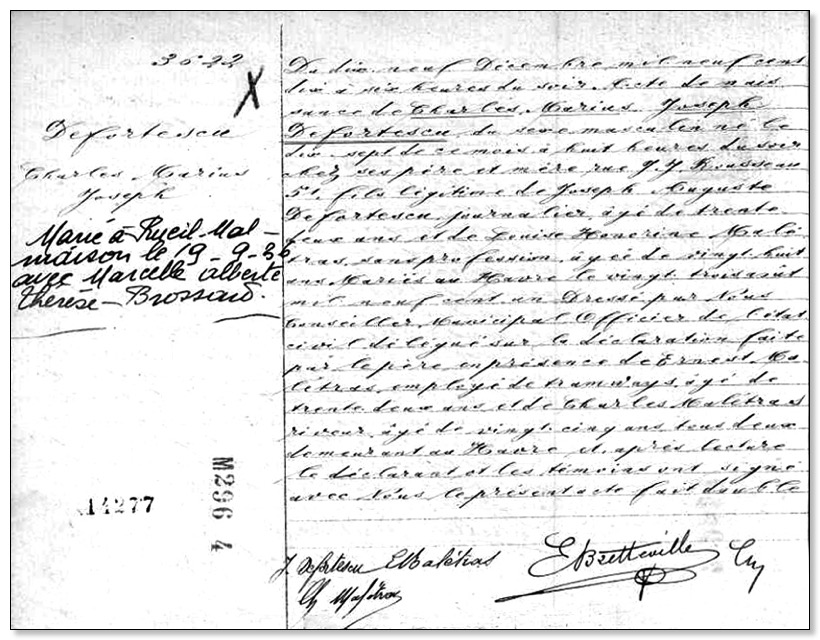 3622
X
Defortescu
Charles Marius
Joseph
Marié à Rueil-Mal-
maison le 19-9-36
avec Marcelle Alberte
Thérèse-Brossard.
14277
M296 4
Du dix neuf Décembre mil neuf cent
dix à six heures du soir Acte de nais
sance de Charles, Marius Joseph
Defortescu du sexe masculin né le
dix sept de ce mois à huit heures du soir
chez ses père et mère rue J. J. Rousseau
51, fils légitime de Joseph Auguste
Defortescu, journalier, âgé de trente
deux ans et de Louise Honorine Malé
tras, sans profession, âgée de vingt huit
ans Mariés au Havre le vingt trois août
mil neuf cent un Dressé par Nous
Conseiller Municipal Officier de l'état
civil délégué sur la déclaration faite
par le père en présence de Ernest Ma
létras, employé de tramways, âgé de
trente deux ans et de Charles Malétras
riveur, âgé de vingt cinq ans tous deux
demeurant au Havre et, après lecture
le déclarant et les témoins ont signé
avec Nous le présent acte fait double
J. Defortescu EMalétras EBretteville
Ch Malétras